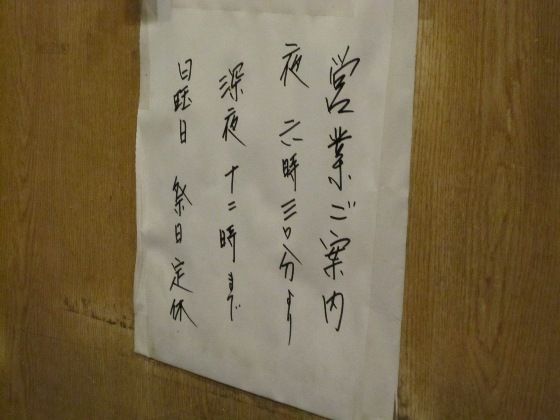 営業ご案内
夜 六時三〇分より
深夜 十二時まで
日曜日 祭日定休